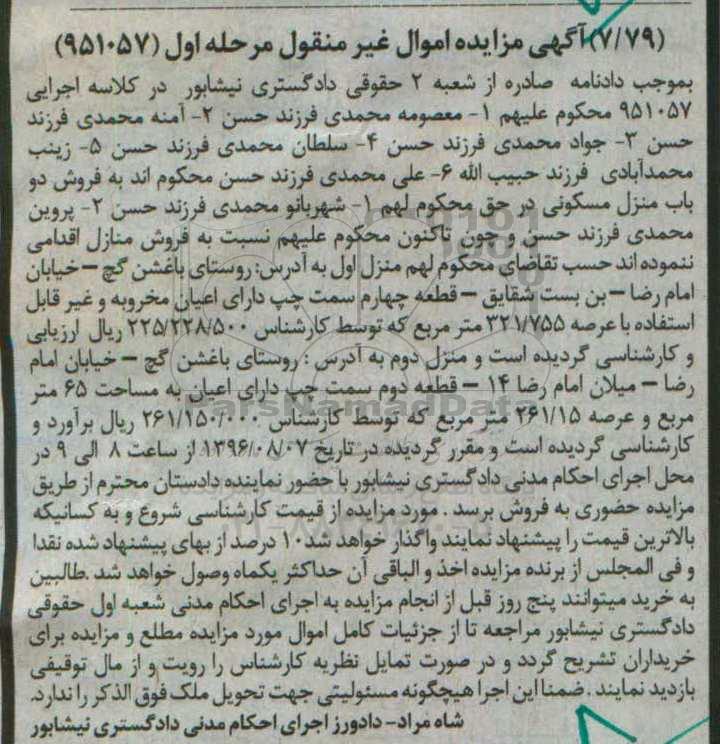 (۷/۷۹) آگهی مزایده اموال غیر منقول مرحله اول (۹۵۱۰۵۷)
بموجب دادنامه صادره از شعبه ۲ حقوقی دادگستری نیشابور در کلاسه اجرایی
۹۵۱۰۵۷ محکوم علیهم ۱- معصومه محمدی فرزند حسن ۲- آمنه محمدی فرزند
حسن ۳- جواد محمدی فرزند حسن ۴- سلطان محمدی فرزند حسن ۵- زینب
محمدآبادی فرزند حبیب الله ۶- علی محمدی فرزند حسن محکوم اند به فروش دو
باب منزل مسکونی در حق محکوم لهم ۱- شهربانو محمدی فرزند حسن ۲- پروین
محمدی فرزند حسن و چون تاکنون محکوم علیهم نسبت به فروش منازل اقدامی
ننموده اند حسب تقاضای محکوم لهم منزل اول به آدرس: روستای باغشن گچ – خیابان
امام رضا – بن بست شقایق – قطعه چهارم سمت چپ دارای اعیان مخروبه و غیر قابل
استفاده با عرصه ۳۲۱/۷۵۵ متر مربع که توسط کارشناس ۲۲۵/۲۲۸/۵۰۰ ریال ارزیابی
و کارشناسی گردیده است و منزل دوم به آدرس : روستای باغشن گچ – خیابان امام
رضا – میلان امام رضا ۱۴ – قطعه دوم سمت چپ دارای اعیان به مساحت ۶۵ متر
مربع و عرصه ۲۶۱/۱۵ متر مربع که توسط کارشناس ۲۶۱/۱۵۰/۰۰۰ ریال برآورد و
کارشناسی گردیده است و مقرر گردیده در تاریخ ۱۳۹۶/۰۸/۰۷ از ساعت ۸ الی ۹ در
محل اجرای احکام مدنی دادگستری نیشابور با حضور نماینده دادستان محترم از طریق
مزایده حضوری به فروش برسد . مورد مزایده از قیمت کارشناسی شروع و به کسانیکه
بالاترین قیمت را پیشنهاد نمایند واگذار خواهد شد ۱۰ درصد از بهای پیشنهاد شده نقدا
و فی المجلس از برنده مزایده اخذ و الباقی آن حداکثر یکماه وصول خواهد شد .طالبین
به خرید میتوانند پنج روز قبل از انجام مزایده به اجرای احکام مدنی شعبه اول حقوقی
دادگستری نیشابور مراجعه تا از جزئیات کامل اموال مورد مزایده مطلع و مزایده برای
خریداران تشریح گردد و در صورت تمایل نظریه کارشناس را رویت و از مال توقیفی
بازدید نمایند . ضمنا این اجرا هیچگونه مسئولیتی جهت تحویل ملک فوق الذکر را ندارد.
شاه مراد- دادورز اجرای احکام مدنی دادگستری نیشابور
ParsNamadData